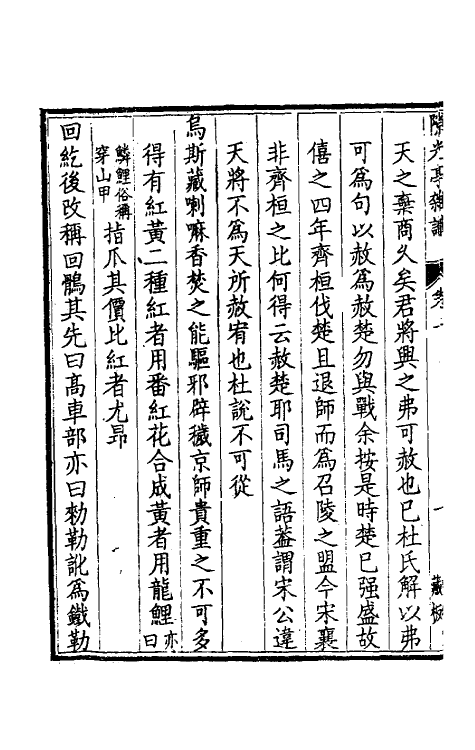 天之棄商久矣君將興之弗可赦也已杜氏解以弗
可爲句以赦爲赦楚勿與戰余按是時楚已强盛故
僖之四年齊桓伐楚且退師而爲召陵之盟今宋襄
非齊桓之比何得云赦楚耶司馬之語葢謂宋公違
天將不爲天所赦宥也杜說不可從
烏斯藏喇嘛香焚之能驅邪辟穢京師貴重之不可多
得有紅黃二種紅者用番紅花合成黃者用龍鯉亦曰
鱗鯉俗稱穿山甲指爪其價比紅者尤昂
回紇後改稱回鶻其先曰高車部亦曰勑勒訛爲鐵勒